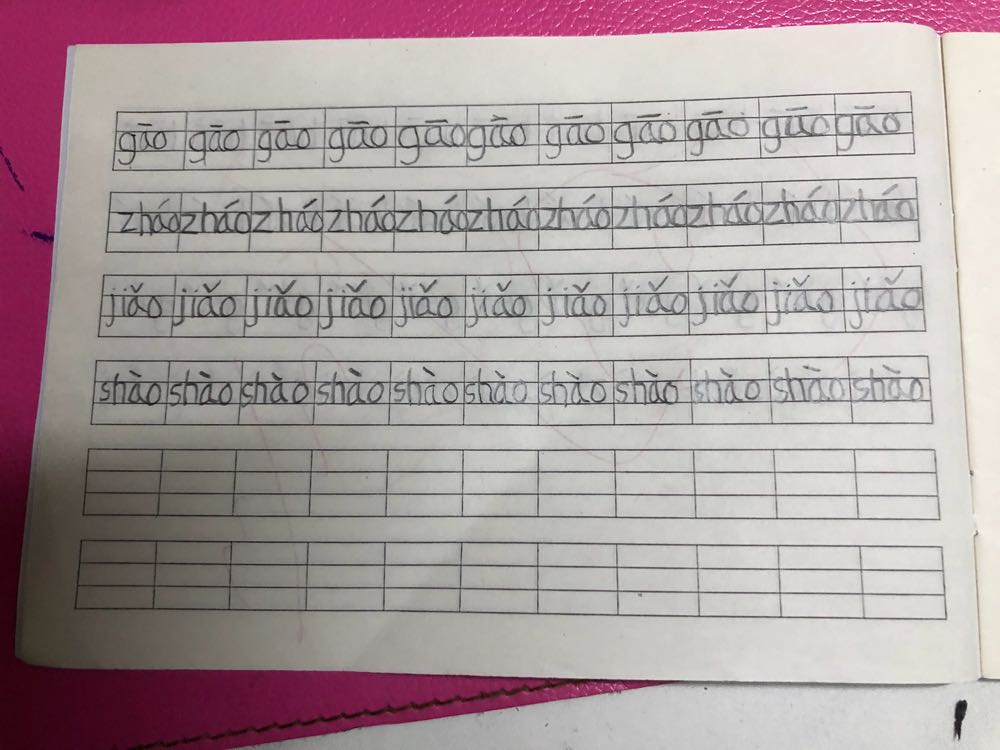 gāo gāo gāo gāo gāo gào gāo gāo gāo gāo gāo
zháo zháo zháo zháo zháo zháo zháo zháo zháo zháo zháo
jiǎo jiǎo jiǎo jiǎo jiǎo jiǎo jiǎo jiǎo jiǎo jiǎo jiǎo
shào shào shào shào shào shào shào shào shào shào shào